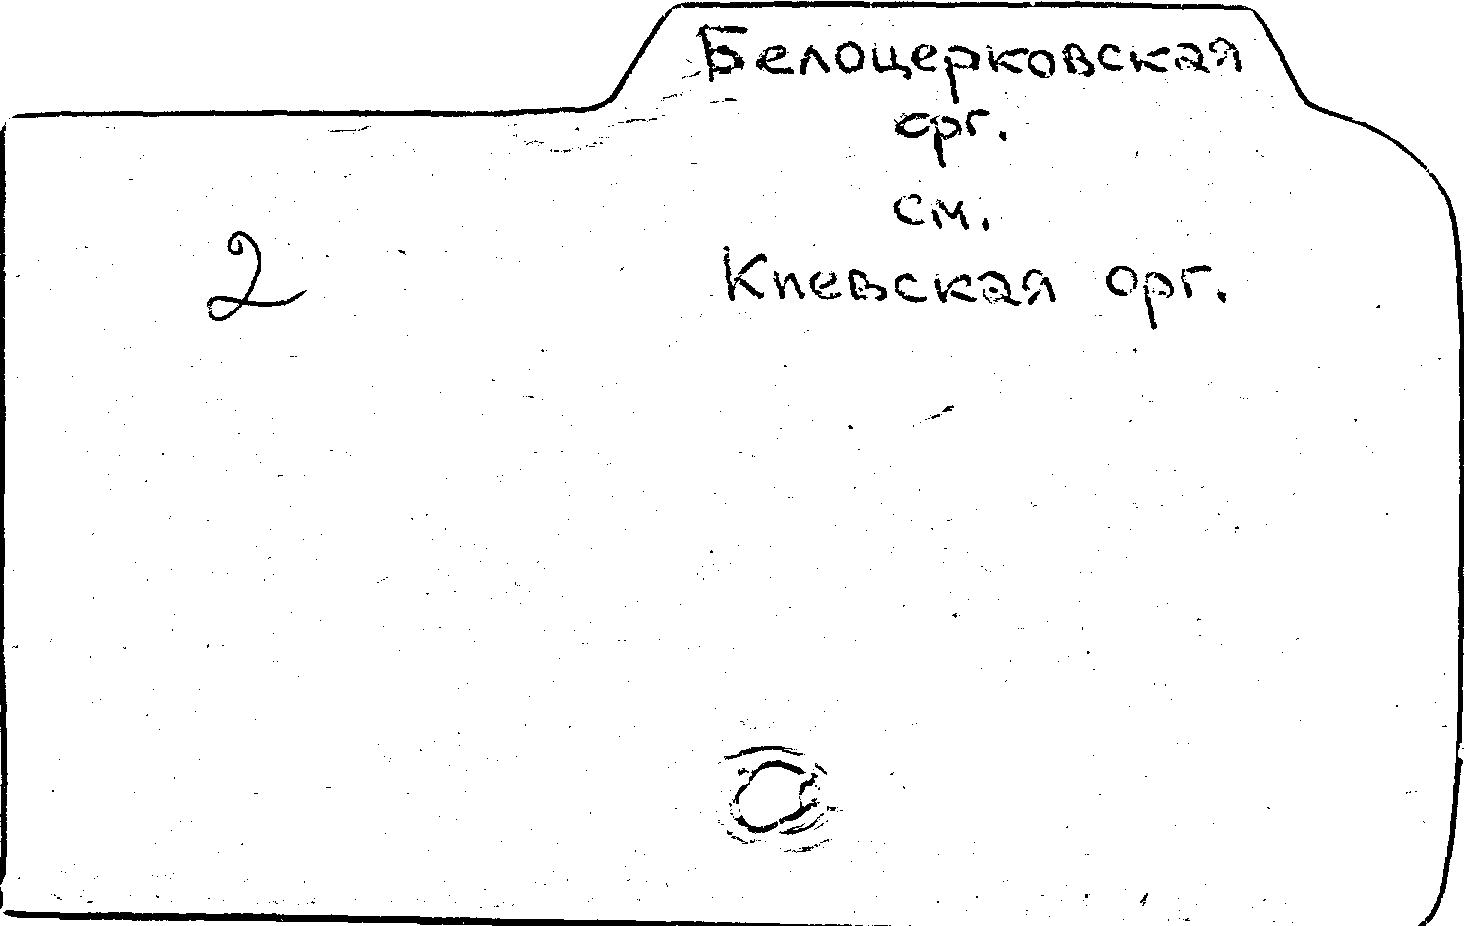 Белоцерковская
орг.
см.
2
Киевская орг.